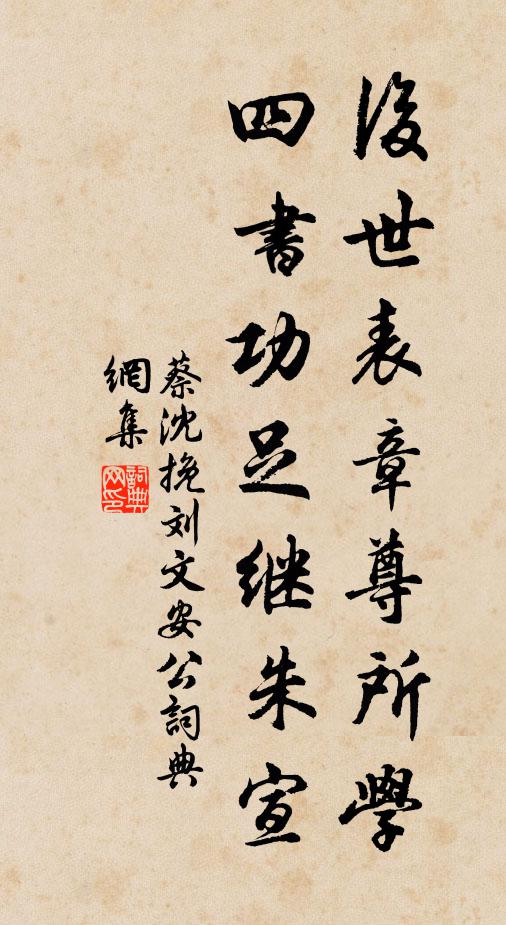 後世表章尊所學
四書功足继朱宣
蔡沈挽刘文安公詞典
網集
詞典
网印